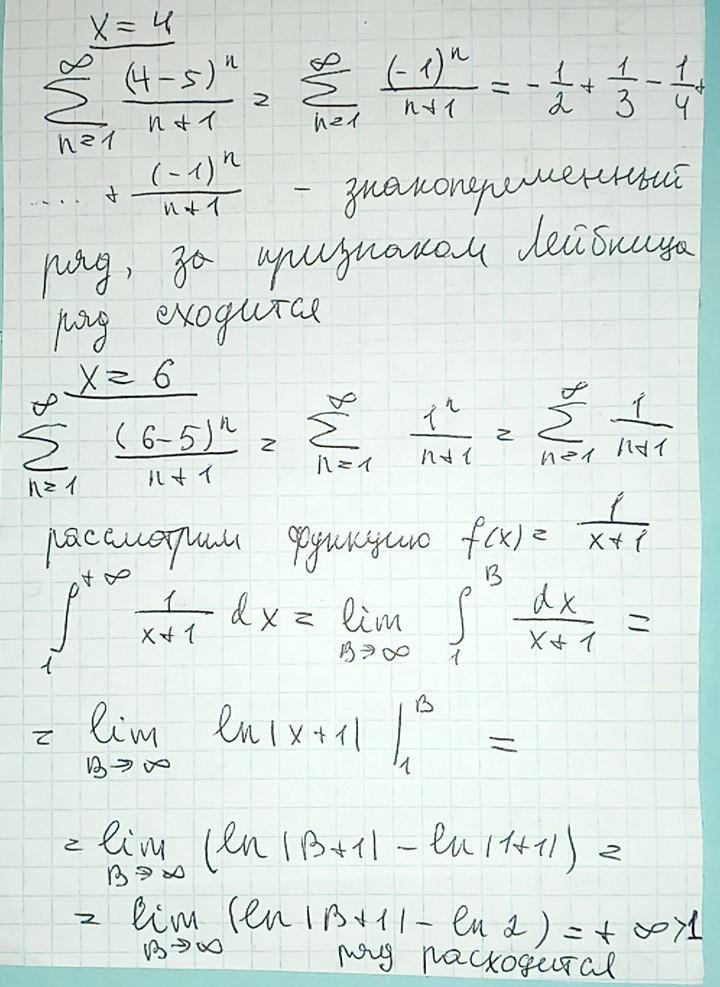 x = 4
∞∑n=1 (4-5)^n/(n+1) = ∞∑n=1 (-1)^n/(n+1) = -1/2 + 1/3 - 1/4 +
.... + (-1)^n/(n+1) - знакопеременный
ряд, за признаком Лейбница
ряд сходится
x = 6
∞∑n=1 (6-5)^n/(n+1) = ∞∑n=1 1^n/(n+1) = ∞∑n=1 1/(n+1)
рассмотрим функцию f(x) = 1/(x+1)
∫_1^{+∞} 1/(x+1) dx = lim_{B→∞} ∫_1^B dx/(x+1) =
= lim_{B→∞} ln|x+1| |_1^B =
= lim_{B→∞} (ln|B+1| - ln|1+1|) =
= lim_{B→∞} (ln|B+1| - ln 2) = + ∞ >1
ряд расходится